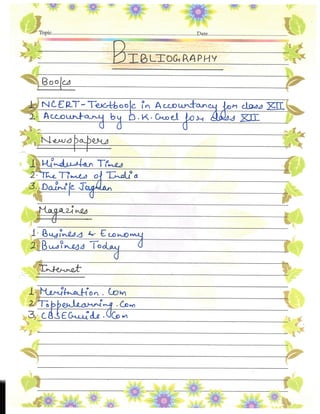 Topic Date
BIBLIOGRAPHY
Books
1. NCERT - Textbook in Accountancy for class XII
2. Accountany by D.K. Goel for class XII
Newspapers
1. Hindustan Times
2. The Times of India
3. Dainik Jagran
Magazines
1. Business & Economy
2. Business Today
Internet
1. Meritnation.Com
2. Topperlearning.Com
3. CBSEGuide.Com